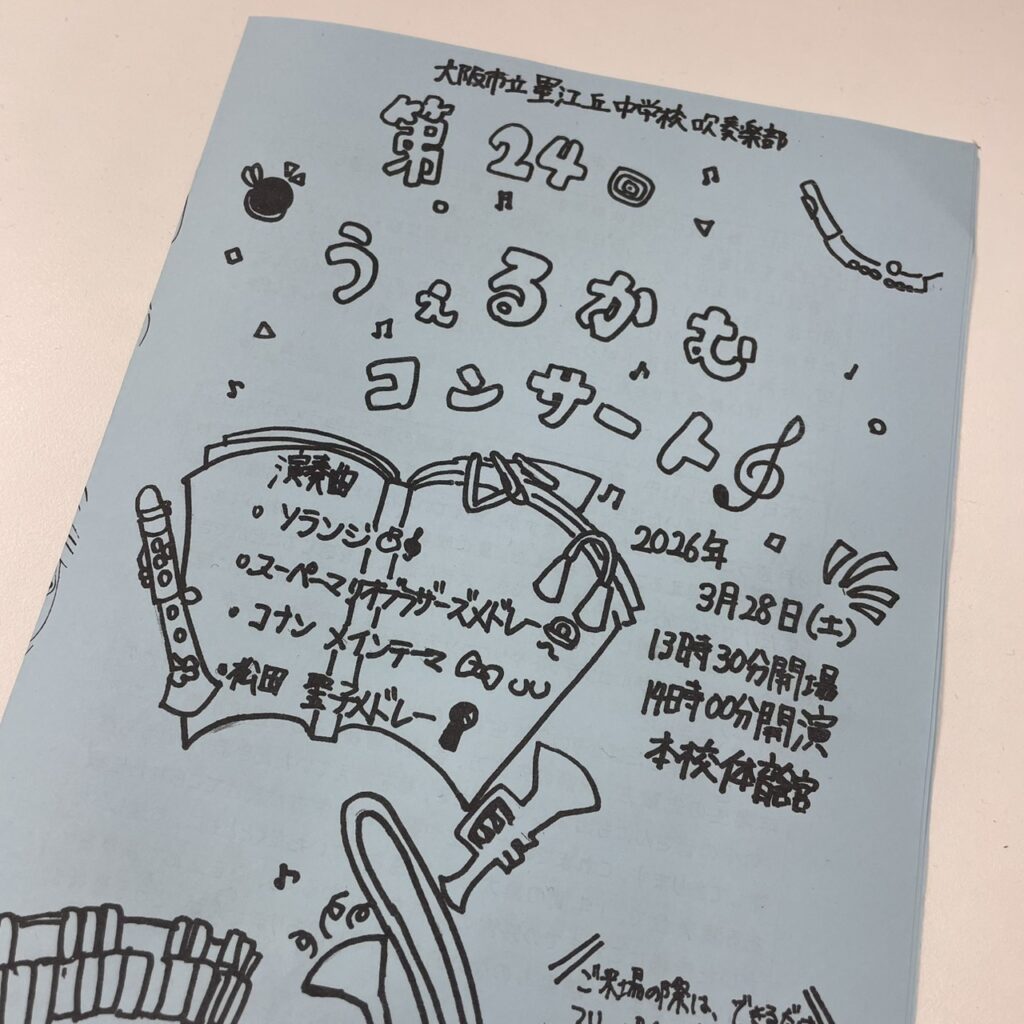 大阪市立墨江丘中学校吹奏楽部
第24回
うぇるかむ
コンサート
演奏曲
・ソランジ
・スーパーマリオブラザーズメドレー
・コナン メインテーマ
・松田聖子メドレー
2026年
3月28日(土)
13時30分開場
14時00分開演
本校体育館
ご来場の際は、できるだけ